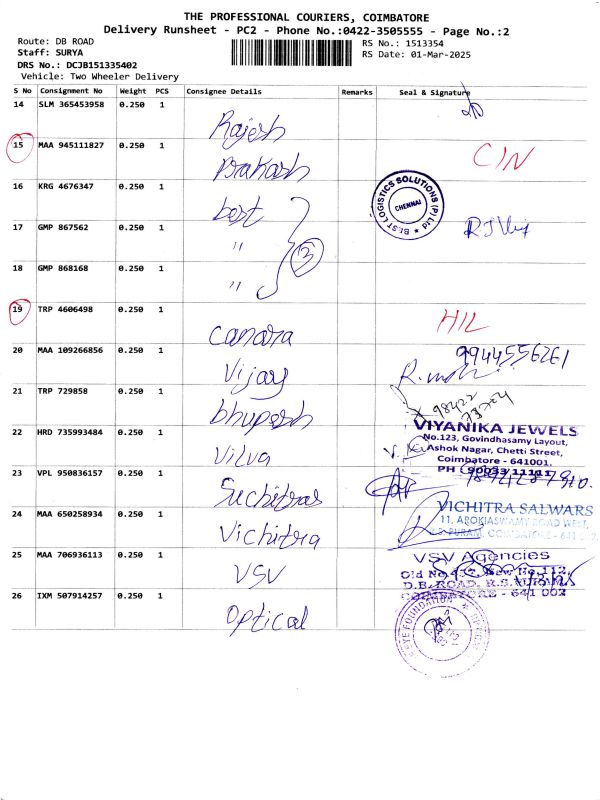 THE PROFESSIONAL COURIERS, COIMBATORE
Delivery Runsheet - PC2 - Phone No.:0422-3505555 - Page No.:2
Route: DB ROAD
Staff: SURYA
DRS No.: DCJB151335402
Vehicle: Two Wheeler Delivery
RS No.: 1513354
RS Date: 01-Mar-2025
S No Consignment No Weight PCS Consignee Details Remarks Seal & Signature
14 SLM 365453958 0.250 1 Rajesh
15 MAA 945111827 0.250 1 Prakash CIN
16 KRG 4676347 0.250 1 best
BEST LOGISTICS SOLUTIONS (P) Ltd
CHENNAI
17 GMP 867562 0.250 1 "
18 GMP 868168 0.250 1 "
3
19 TRP 4606498 0.250 1 Canara HIL
20 MAA 109266856 0.250 1 Vijay 9944556261
21 TRP 729858 0.250 1 bhupesh 98422
22 HRD 735993484 0.250 1 Vilva
VIYANIKA JEWELS
No.123, Govindhasamy Layout,
Ashok Nagar, Chetti Street,
Coimbatore - 641001.
PH : 90033 11111
23 VPL 950836157 0.250 1 Suchitras
24 MAA 650258934 0.250 1 Vichitra
VICHITRA SALWARS
11, AROKIASWAMY ROAD WEST,
R.S PURAM, COIMBATORE - 641 002.
25 MAA 706936113 0.250 1 VSV
VSV Agencies
D.B. ROAD, R.S. PURAM
COIMBATORE - 641 002
26 IXM 507914257 0.250 1 Optical
EYE FOUNDATION